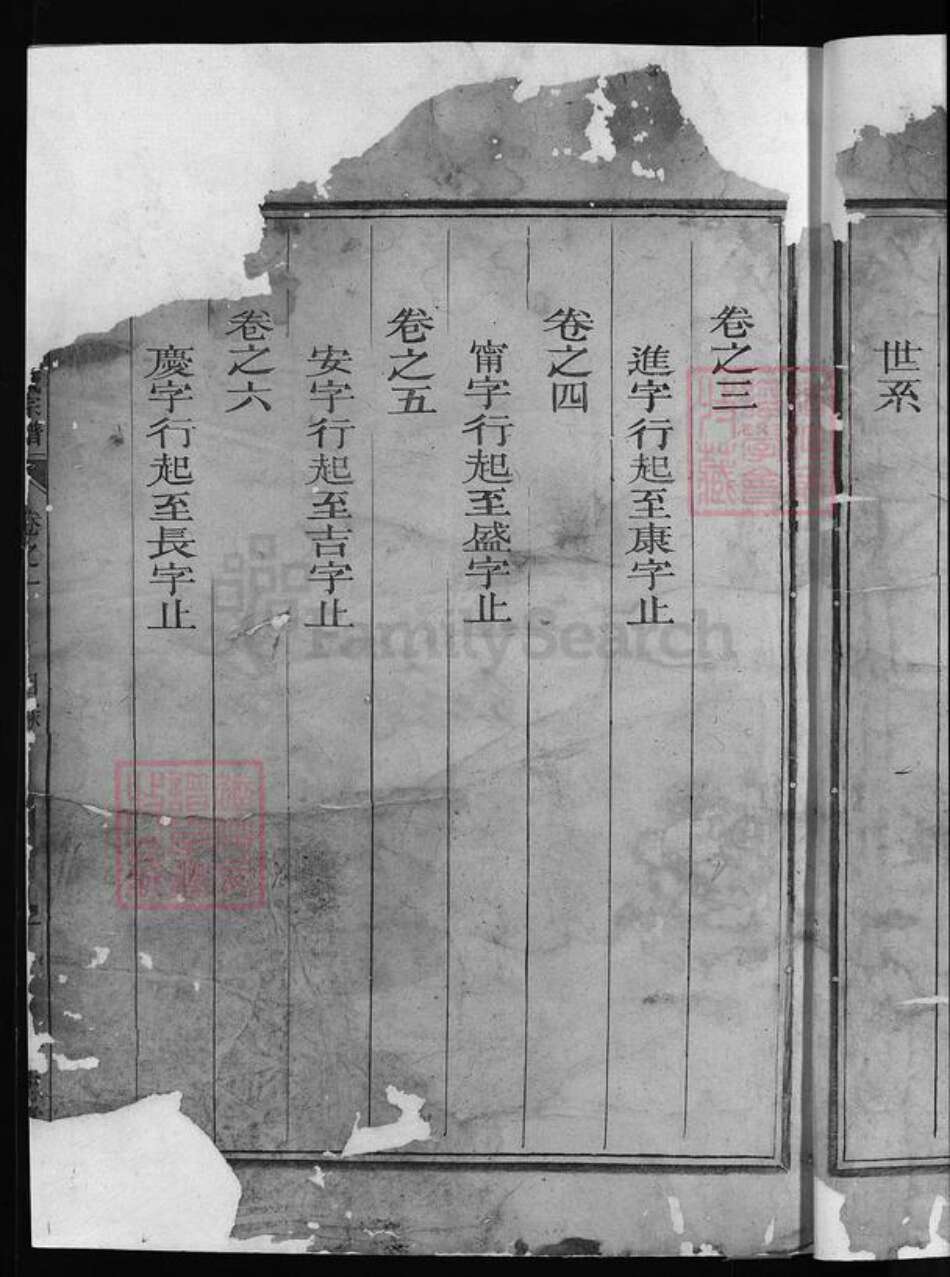 世系
卷之三
進字行起至康字止
卷之四
甯字行起至盛字止
卷之五
安字行起至吉字止
卷之六
慶字行起至長字止
宗譜
卷之一
FamilySearch